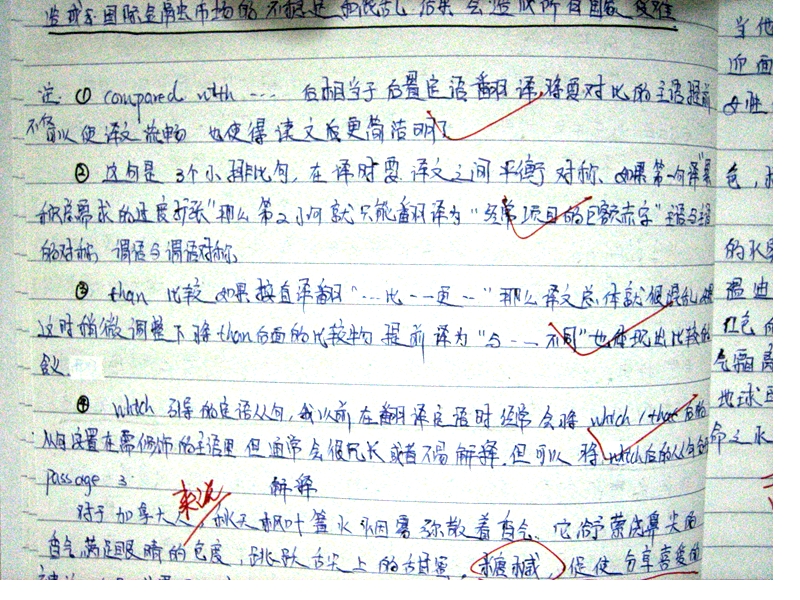 造成了国际金融市场的不稳定和混乱 结果会造成所有国家受难
注 ① compared with … 后相当于后置定语翻译,将要对比的主语提前
不仅可以使译文流畅 也使得读文后更简洁明了
② 这句是3个小排比句,在译时要译文之间平衡对称、如果第一句译"累
积总需求的进度扩张"那么第2小句就只能翻译为"经常项目的巨额赤字"主语与主语
的对称,谓语与谓语对称。
③ than 比较 如果按直译翻"…比…更…"那么译文总体就很混乱
这时稍微调整下将than后面的比较物提前译为"与…不同"也体现出比较的
含义
④ which 引导的定语从句,我以前在翻译定语时经常会将which/that后的
从句放置在需修饰的主语里 但通常会很冗长或者不易解释.但可以将which后的从句
passage 3. 解释
对于加拿大人来说,秋天枫叶篝火烟雾弥散着香气.它给予萦绕鼻尖的
香气,满足眼睛的色度,跳跃舌尖上的甜蜜,糖槭,促使分享喜爱的
当他
迎面
色,
的
温迪
红色
气
地球
命之水